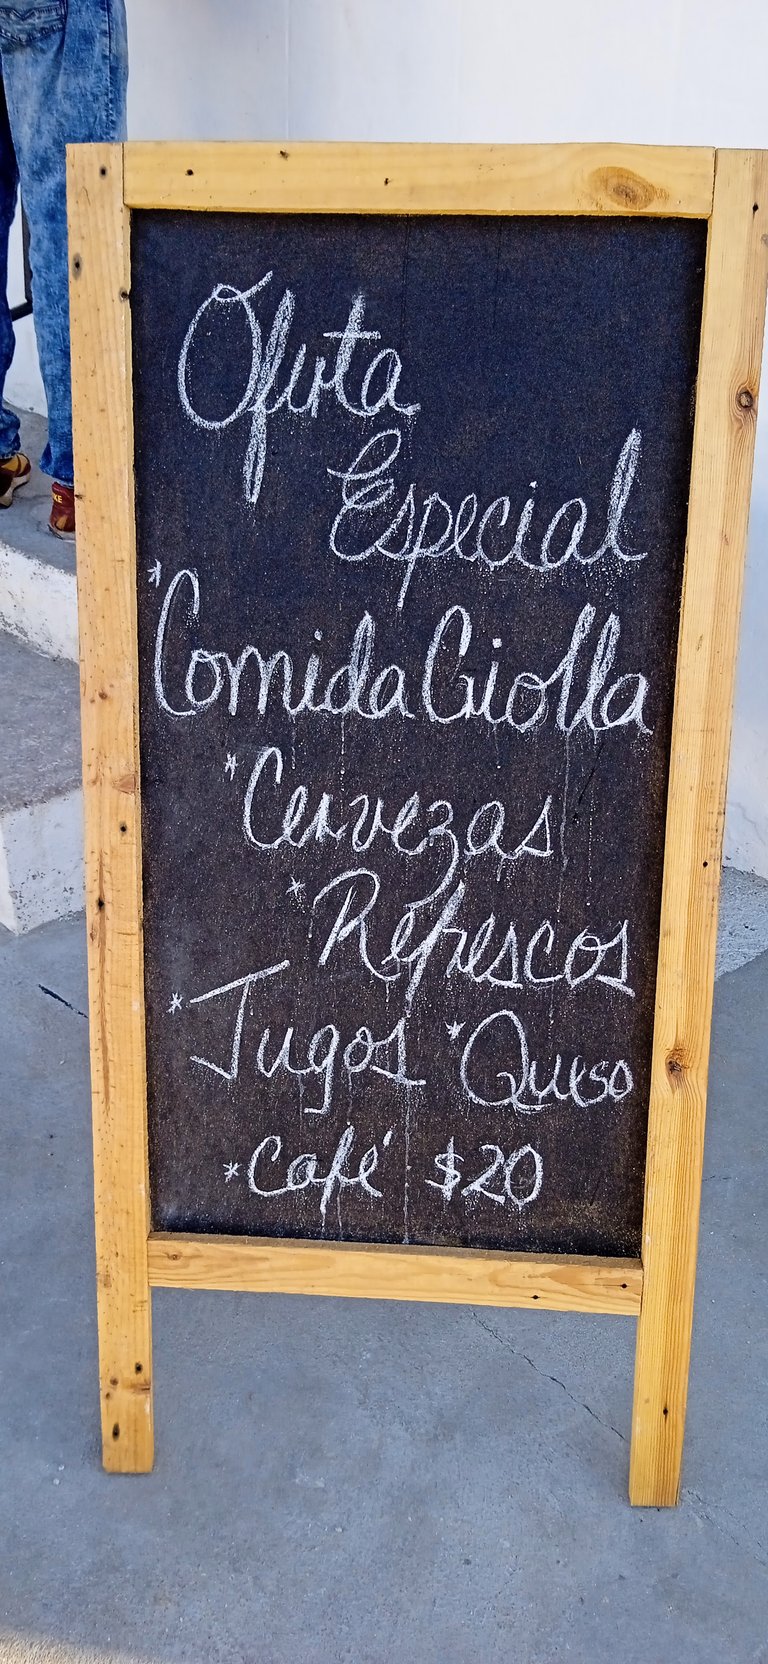 Oferta
Especial
*Comida Criolla
*Cervezas
*Refrescos
*Jugos *Queso
*Café $20